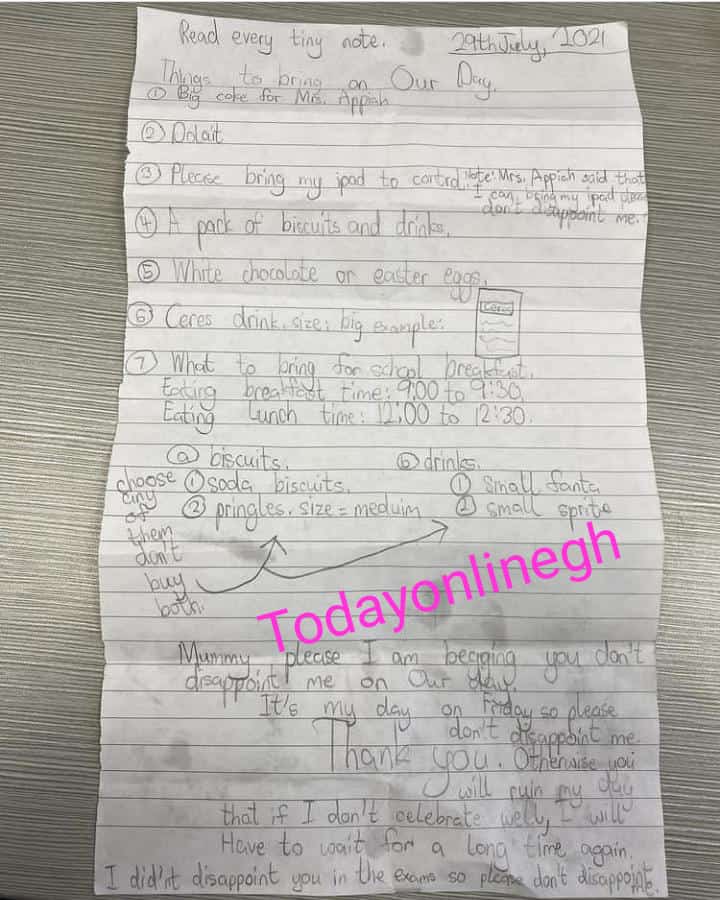 Read every tiny note.
29th July, 2021
Things to bring on Our Day.
① Big cake for Mrs. Appiah
② Dolait
③ Please bring my ipad to control.
Note: Mrs. Appiah said that
I can bring my ipad
don't disappoint me.
④ A pack of biscuits and drinks.
⑤ White chocolate or easter eggs.
⑥ Ceres drink. size: big example:
Ceres
⑦ What to bring for school breakfast.
Eating breakfast time: 9:00 to 9:30.
Eating Lunch time: 12:00 to 12:30.
ⓐ biscuits.
① soda biscuits.
② pringles. size = meduim
ⓑ drinks.
① small fanta
② small sprite
choose
any
of
them
don't
buy
both.
Todayonlinegh
Mummy please I am begging you don't
disappoint me on Our day.
It's my day on Friday so please
don't disappoint me.
Thank you. Otherwise you
will ruin my day
that if I don't celebrate well, I will
Have to wait for a long time again.
I did'nt disappoint you in the exams so please don't disappoint
me.